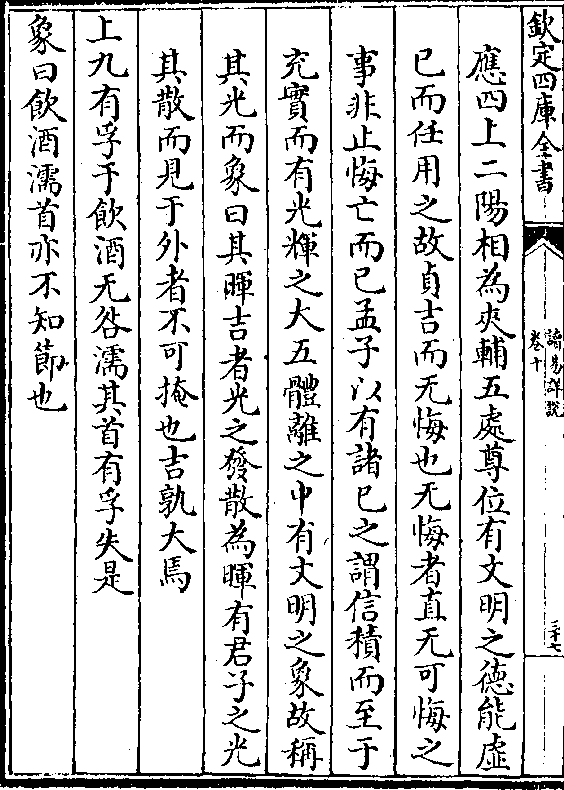 欽定四庫全書
讀易詳說
卷十
三十七
應四上二陽相為夾輔五處尊位有文明之德能虛
已而任用之故貞吉而无悔也无悔者直无可悔之
事非止悔亡而已孟子以有諸已之謂信積而至于
充實而有光輝之大五體離之中有文明之象故稱
其光而象曰其暉吉者光之發散為暉有君子之光
其散而見于外者不可掩也吉孰大焉
上九有孚于飲酒无咎濡其首有孚失是
象曰飲酒濡首亦不知節也